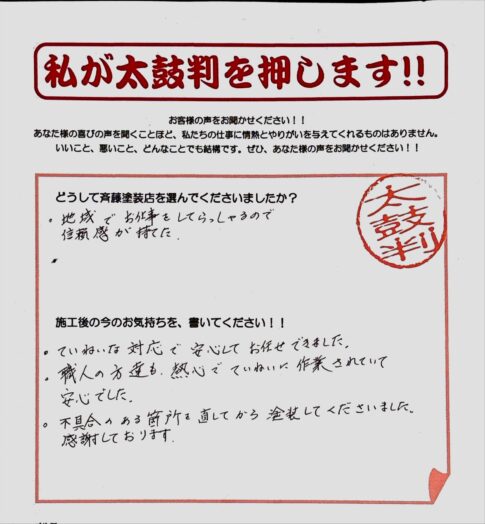 私が太鼓判を押します!!
お客様の声をお聞かせください！！
あなた様の喜びの声を聞くことほど、私たちの仕事に情熱とやりがいを与えてくれるものはありません。
いいこと、悪いこと、どんなことでも結構です。ぜひ、あなた様の声をお聞かせください！！
どうして斉藤塗装店を選んでくださいましたか？
太鼓判
・地域でお仕事をしてらっしゃるので
信頼感が持てた.
施工後の今のお気持ちを、書いてください！！
・ていねいな対応で安心してお任せできました。
・職人の方達も、熱心でていねいに作業されていて
安心でした。
・不具合のある箇所を直してから塗装してくださいました。
感謝しております.